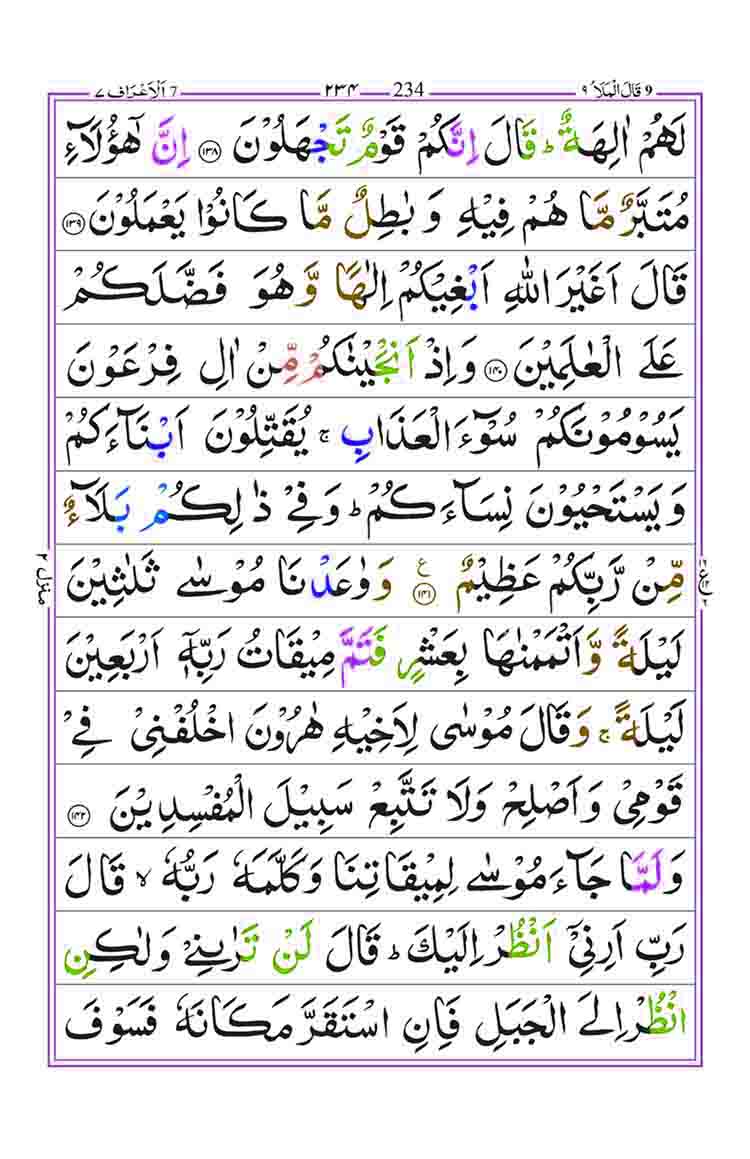 ٩ قَالَ الْمَلَاُ ٩ 234 ٢٣٤ 7 اَلْاَعْرَاف ٧
لَهُمْ اٰلِهَةٌ ؕ قَالَ اِنَّكُمْ قَوْمٌ تَجْهَلُوْنَ ﴿۱۳۸﴾ اِنَّ هٰٓؤُلَآءِ
مُتَبَّرٌ مَّا هُمْ فِیْهِ وَ بٰطِلٌ مَّا كَانُوْا یَعْمَلُوْنَ ﴿۱۳۹﴾
قَالَ اَغَیْرَ اللّٰهِ اَبْغِیْكُمْ اِلٰهًا وَّ هُوَ فَضَّلَكُمْ
عَلَی الْعٰلَمِیْنَ ﴿۱۴۰﴾ وَ اِذْ اَنْجَیْنٰكُمْ مِّنْ اٰلِ فِرْعَوْنَ
یَسُوْمُوْنَكُمْ سُوْٓءَ الْعَذَابِ ۚ یُقَتِّلُوْنَ اَبْنَآءَكُمْ
وَ یَسْتَحْیُوْنَ نِسَآءَكُمْ ؕ وَ فِیْ ذٰلِكُمْ بَلَآءٌ
مِّنْ رَّبِّكُمْ عَظِیْمٌ ﴿۱۴۱﴾ ع وَ وٰعَدْنَا مُوْسٰی ثَلٰثِیْنَ
لَیْلَةً وَّ اَتْمَمْنٰهَا بِعَشْرٍ فَتَمَّ مِیْقَاتُ رَبِّهٖۤ اَرْبَعِیْنَ
لَیْلَةً ۚ وَ قَالَ مُوْسٰی لِاَخِیْهِ هٰرُوْنَ اخْلُفْنِیْ فِیْ
قَوْمِیْ وَ اَصْلِحْ وَ لَا تَتَّبِعْ سَبِیْلَ الْمُفْسِدِیْنَ ﴿۱۴۲﴾
وَ لَمَّا جَآءَ مُوْسٰی لِمِیْقَاتِنَا وَ كَلَّمَهٗ رَبُّهٗ ۙ قَالَ
رَبِّ اَرِنِیْۤ اَنْظُرْ اِلَیْكَ ؕ قَالَ لَنْ تَرٰىنِیْ وَ لٰكِنِ
انْظُرْ اِلَی الْجَبَلِ فَاِنِ اسْتَقَرَّ مَكَانَهٗ فَسَوْفَ
منزل ٢